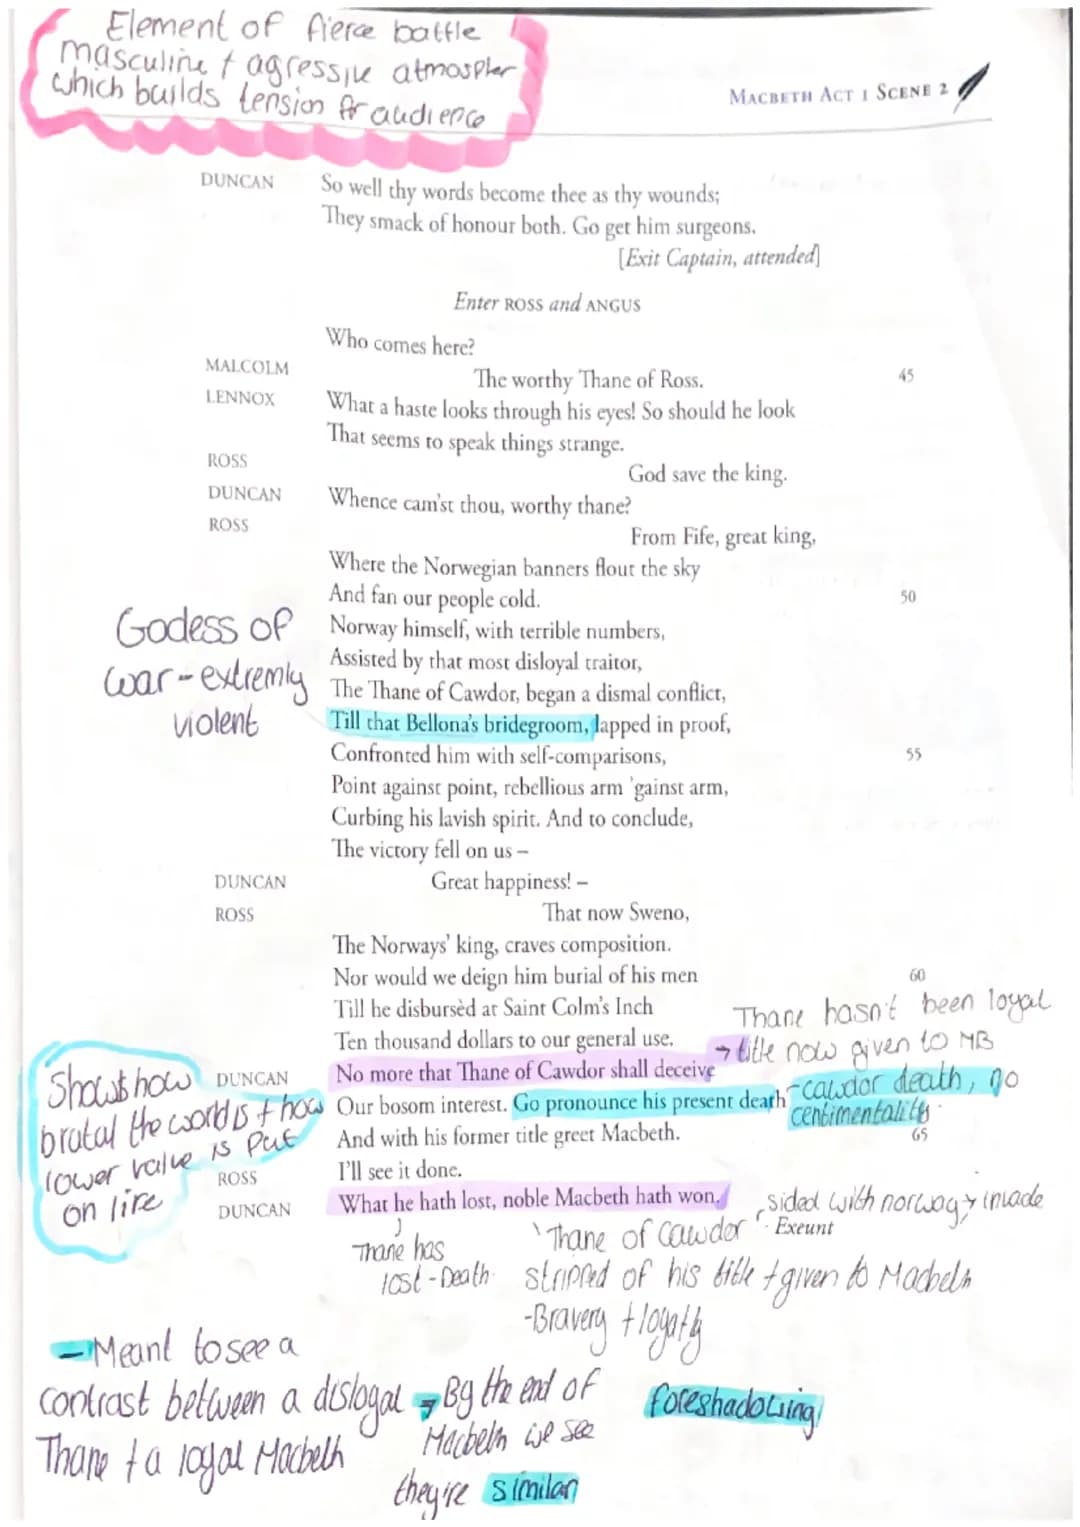 Element of fierce battle
masculine + agressive atmospher
which builds tension for audience
MACBETH ACT 1 SCENE 2
DUNCAN So well thy words become thee as thy wounds;
They smack of honour both. Go get him surgeons.
[Exit Captain, attended]
Enter ROSS and ANGUS
Who comes here?
MALCOLM The worthy Thane of Ross. 45
LENNOX What a haste looks through his eyes! So should he look
That seems to speak things strange.
ROSS God save the king.
DUNCAN Whence cam'st thou, worthy thane?
ROSS From Fife, great king,
Where the Norwegian banners flout the sky
And fan our people cold. 50
Norway himself, with terrible numbers,
Assisted by that most disloyal traitor,
The Thane of Cawdor, began a dismal conflict,
Till that Bellona's bridegroom, lapped in proof,
Confronted him with self-comparisons, 55
Point against point, rebellious arm 'gainst arm,
Curbing his lavish spirit. And to conclude,
The victory fell on us –
Godess of
war - extremly
violent
DUNCAN Great happiness! –
ROSS That now Sweno,
The Norways' king, craves composition.
Nor would we deign him burial of his men 60
Till he disbursèd at Saint Colm's Inch
Ten thousand dollars to our general use.
DUNCAN No more that Thane of Cawdor shall deceive
Our bosom interest. Go pronounce his present death
And with his former title greet Macbeth. 65
ROSS I'll see it done.
DUNCAN What he hath lost, noble Macbeth hath won.
Exeunt
Thane hasn't been loyal
→ title now given to MB
- cawdor death, no
centimentality.
Shows how
brutal the world is + how
lower value is put
on life
Thane has
lost - Death.
sided with norway → invade
Thane of Cawdor
stripped of his title + given to Macbeth
- Bravery + loyalty
- Meant to see a
contrast between a disloyal
Thane + a loyal Macbeth
→ By the end of
Macbeth we see
they're similar
foreshadowing